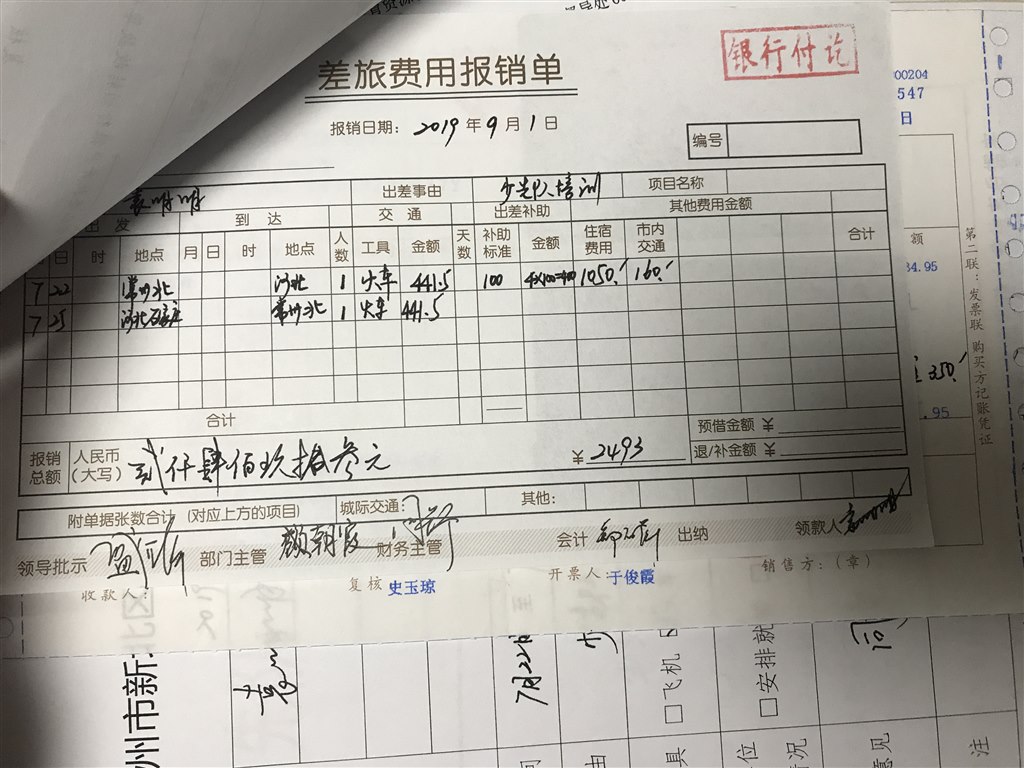 银行付讫
差旅费用报销单
00204
547
报销日期: 2019年9月1日
日
编号
袁明明 出差事由 少先队培训 项目名称
出发 到达 交通 出差补助 其他费用金额
日 时 地点 月 日 时 地点 人数 工具 金额 天数 补助标准 金额 住宿费用 市内交通 合计
额
7 22 常州北 河北 1 火车 441.5 100 4×100=400 1050 160
34.95
7 25 河北石家庄 常州北 1 火车 441.5
350
合计
.95
预借金额 ¥
报销总额 人民币(大写) 贰仟肆佰玖拾叁元 ¥2493 退/补金额 ¥
第二联:发票联 购买方记账凭证
附单据张数合计 (对应上方的项目) 城际交通: 其他:
领导批示 部门主管 顾朝霞 财务主管 会计 出纳 领款人 袁明明
收款人: 复核 史玉琼 开票人: 于俊霞 销售方:(章)
州市新北区
7月22日
飞机
安排就
具
位
情况
意见
注
由